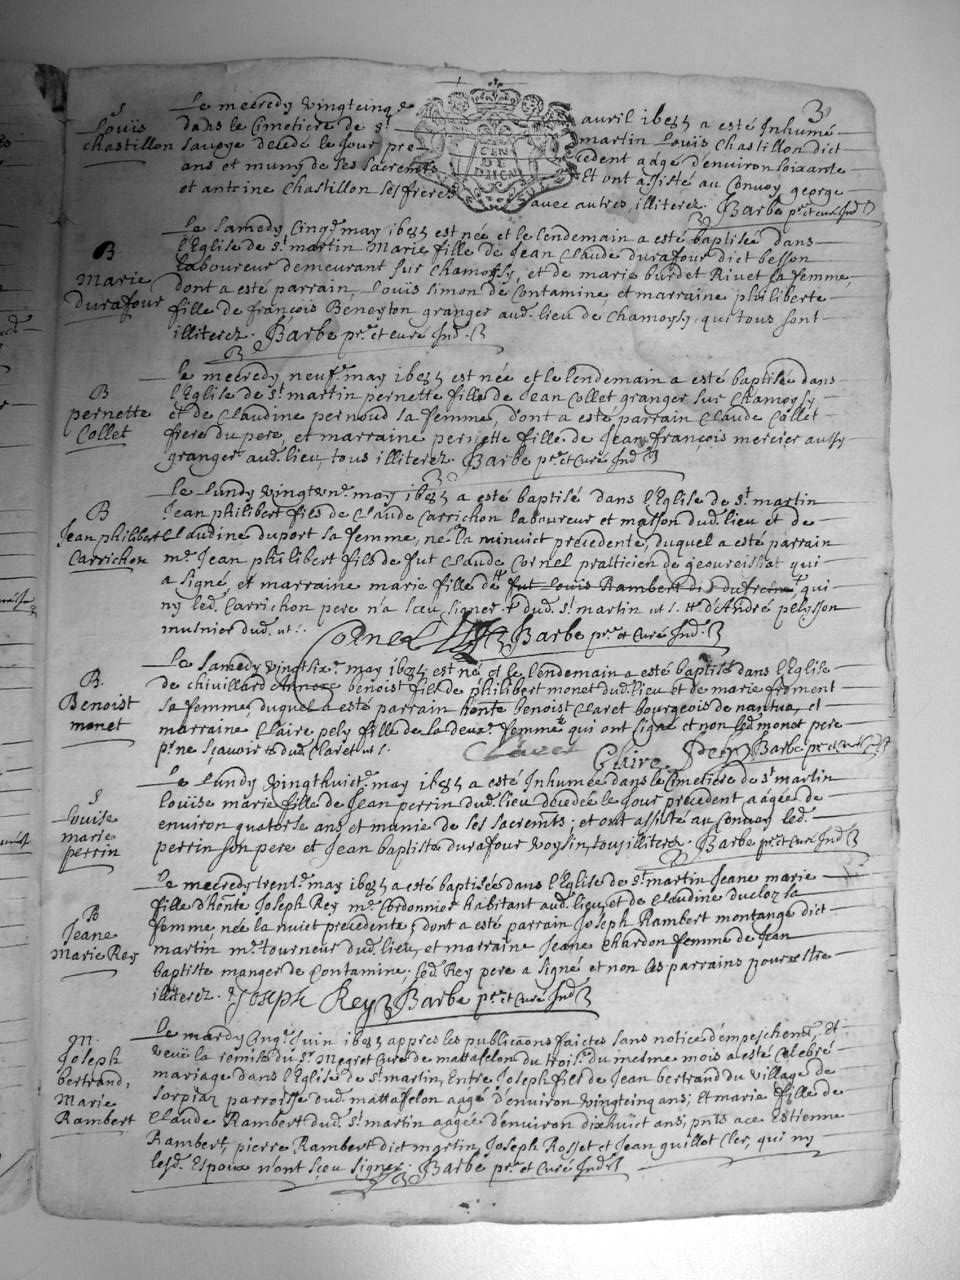 3
S
Louïs
chastillon
Le mecredy vingtcinq.e avril 1685 a esté Inhumé
dans le Cimetiere de st martin Louïs Chastillon dict
Savoye decedé le jour precedent aagé d'environ soixante
ans et muny de ses sacremts Et ont assisté au Convoy george
et antoine Chastillon ses freres avec autres, illiterez. Barbe ptre et curé Ind
B
Marie
durafour
Le samedy Cinq.e may 1685 est née et le lendemain a esté baptisée dans
l'Eglise de st martin Marie fille de Jean Claude durafour dict besson
laboureur demeurant sur Chamoysy, et de marie burdet Rivet sa femme,
dont a esté parrain, Louïs simon de Contamine et marraine philiberte
fille de françois Beneyton granger aud. lieu de Chamoysy, qui tous sont
illiterez. Barbe ptre et curé Ind.
B
pernette
Collet
Le mecredy neuf.e may 1685 est née et le lendemain a esté baptisée dans
l'Eglise de st martin pernette fille de Jean Collet granger sur Chamoysy
et de Claudine pernoud sa femme, dont a esté parrain Claude Collet
frere du pere, et marraine pernette fille de Jean françois mercier aussy
granger aud. lieu, tous illiterez. Barbe ptre et Curé Ind
B
Jean philibert
Carrichon
Le Lundy vingtvn.e may 1685 a esté baptisé dans l'Eglise de st martin
Jean philibert fils de Claude Carrichon laboureur et masson dud. lieu et de
Claudine duport sa femme, né la minuict precedente, duquel a esté parrain
m.e Jean philibert fils de fut Claude Cornel pratticien de qui
a signé, et marraine marie fille de fut Louïs Rambert qui
ny led. Carrichon pere n'a sceu signer dud. st martin ut s. d'André pelysson
musnier dud. ut s. Cornel Barbe ptre et Curé Ind.
B.
Benoist
monet
Le samedy vingtsix.e may 1685 est né et le lendemain a esté baptisé dans l'Eglise
de chivillard benoist fils de philibert monet dud. lieu et de marie froment
sa femme, duquel a esté parrain honte benoist Claret bourgeois de nantua, et
marraine Claire pely fille de la femme qui ont signé et non led. monet pere
p.r ne sçavoir dud. Claret ut s. Claret Claire Pely Barbe ptre et curé Ind
S
Louïse
marie
perrin
Le Lundy vingthuict.e may 1685 a esté Inhumée dans le Cimetiere de st martin
Louïse marie fille de Jean perrin dud. lieu decedée le jour precedent aagée de
environ quatorse ans et munie de ses sacremts; et ont assisté au Convoy led.
perrin son pere et Jean baptiste durafour voysin, tous illiterez. Barbe ptre et Curé Ind
B
Jeane
Marie Rey
Le mecredy trent.e may 1685 a esté baptisée dans l'Eglise de st martin Jeane marie
fille d'honte Joseph Rey m.e Cordonnier habitant aud. lieu et de Claudine ducloz sa
femme, née la nuict precedente; dont a esté parrain Joseph Rambert montange dict
martin m.e tourneur dud. lieu, et marraine Jeane chardon femme de Jean
baptiste manger de Contamine, led. Rey pere a signé et non les parrains pour estre
illiterez. Joseph Rey Barbe ptre et Curé Ind
M.
Joseph
bertrand,
Marie
Rambert
Le mardy Cinq.e Juin 1685 appres les publicaons faictes sans notice d'empeschent, et
veü la remise du sr Megret Curé de mattafelon du trois.e du mesme mois a esté Celebré
mariage dans l'Eglise de st martin, Entre Joseph fils de Jean bertrand du village de
Sorpiaz parroisse dud. mattafelon aagé d'environ vingtcinq ans; et marie fille de
Claude Rambert dud. st martin aagée d'environ dixhuict ans, pnts a ce Estienne
Rambert, pierre Rambert dict martin, Joseph Rosset et Jean guillot Cler, qui ny
lesd. Espoux n'ont sçeu signer. Barbe ptre et Curé Ind